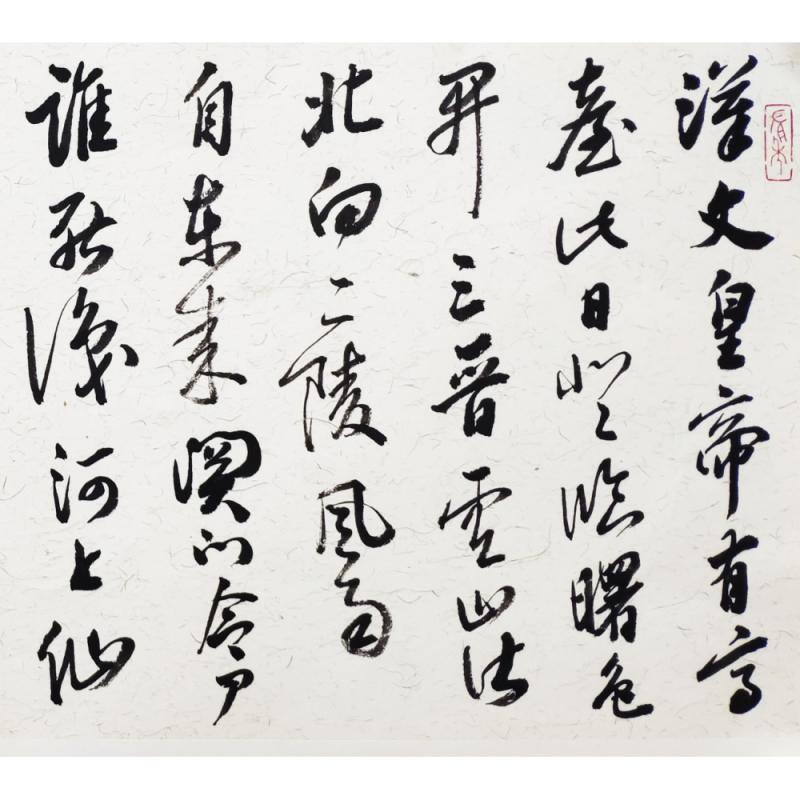 漢文皇帝有高
臺此日登臨曙色
開三晉雲山皆
北向二陵風雨
自東來關門令尹
誰能識河上仙